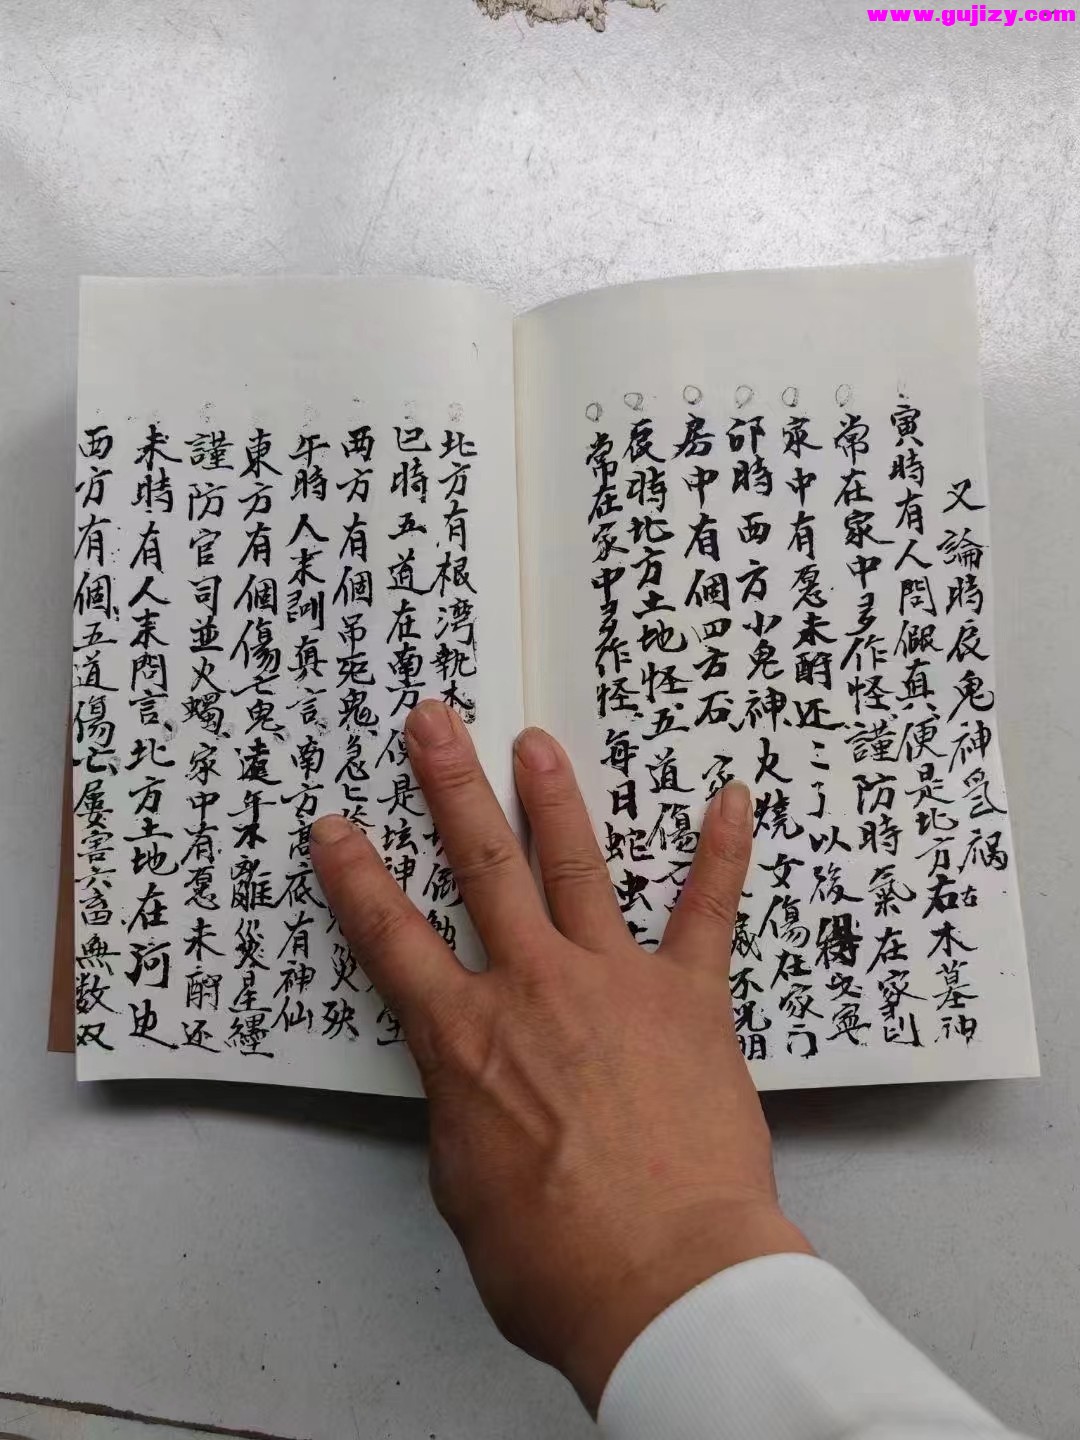 www.gujizy.com
又論時辰鬼神爲禍
寅時有人問假真便是北方右木墓神
常在家中多作怪謹防時氣在家
家中有愿未酧还了以後得安寧
卯時西方小鬼神火燒女傷在家门
房中有個四方石家歲不光明
辰時北方土地怪五道傷亡
常在家中多作怪每日蛇虫上
北方有根湾執木
巳時五道在南方便是坛神
西方有個吊死鬼急災殃
午時人来訓真言南方高底有神仙
東方有個傷亡鬼遠年不離災星纒
謹防官司並火蠋家中有愿未酧还
未時有人来問言北方土地在河边
西方有個五道傷亡屢害六畜無数双